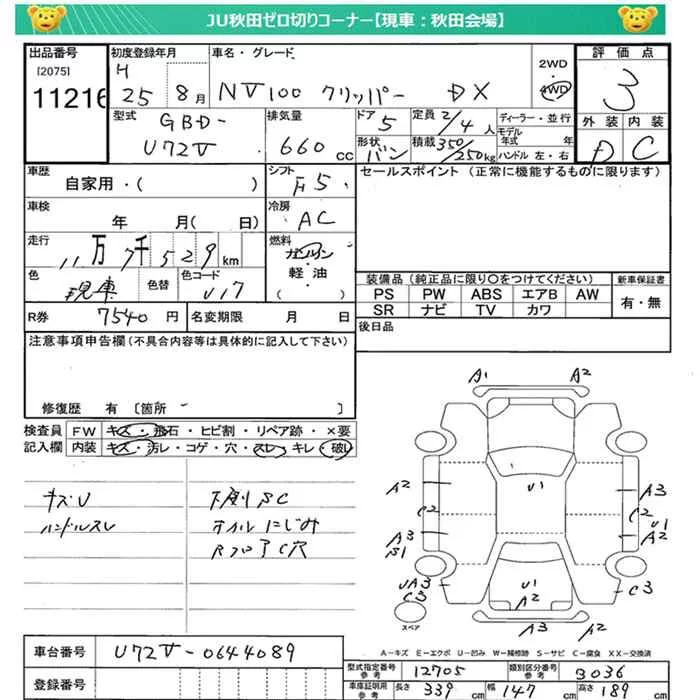 JU秋田ゼロ切りコーナー【現車：秋田会場】
出品番号 初度登録年月 車名・グレード 2WD 4WD 評価点
[2075] H
11216 25 8月 NV100 クリッパー DX 3
型式 排気量 ドア 定員 ディーラー・並行 外装 内装
GBD-U72V 660cc 5 2/4人 モデル年式 年 D C
形状 バン 積載 350/250kg ハンドル 左・右
車歴 シフト セールスポイント（正常に機能するものに限ります）
自家用・（ ） F5
車検 冷房
年 月（ 日） AC
走行 燃料
11万7千529km ガソリン
軽油
・
（ ）
色 色替 色コード 装備品（純正品に限り○をつけてください） 新車保証書
現車 U17 PS PW ABS エアB AW 有・無
SR ナビ TV カワ
R券 7540円 名変期限 月 日 後日品
注意事項申告欄（不具合内容等は具体的に記入して下さい）
修復歴 有 〔箇所 〕
検査員 FW キズ・飛石・ヒビ割・リペア跡・×要
記入欄 内装 キズ・汚レ・コゲ・穴・スレ・キレ・破レ
キズU 下廻りSC
ハンドルスレ オイルにじみ
RフロアC穴
A1 A2
U1
A2 A3
C2 C2
U1
A3 A2
B1
UA3 U1 C3
C3 A2
スペア A3 A2
A－キズ E－エクボ U－凹み W－補修跡 S－サビ C－腐食 XX－交換済
車台番号 U72V-0644089
型式指定番号 参考 12705 類別区分番号 参考 3036
登録番号 車庫証明用 参考 長さ 339 幅 147 高さ 189